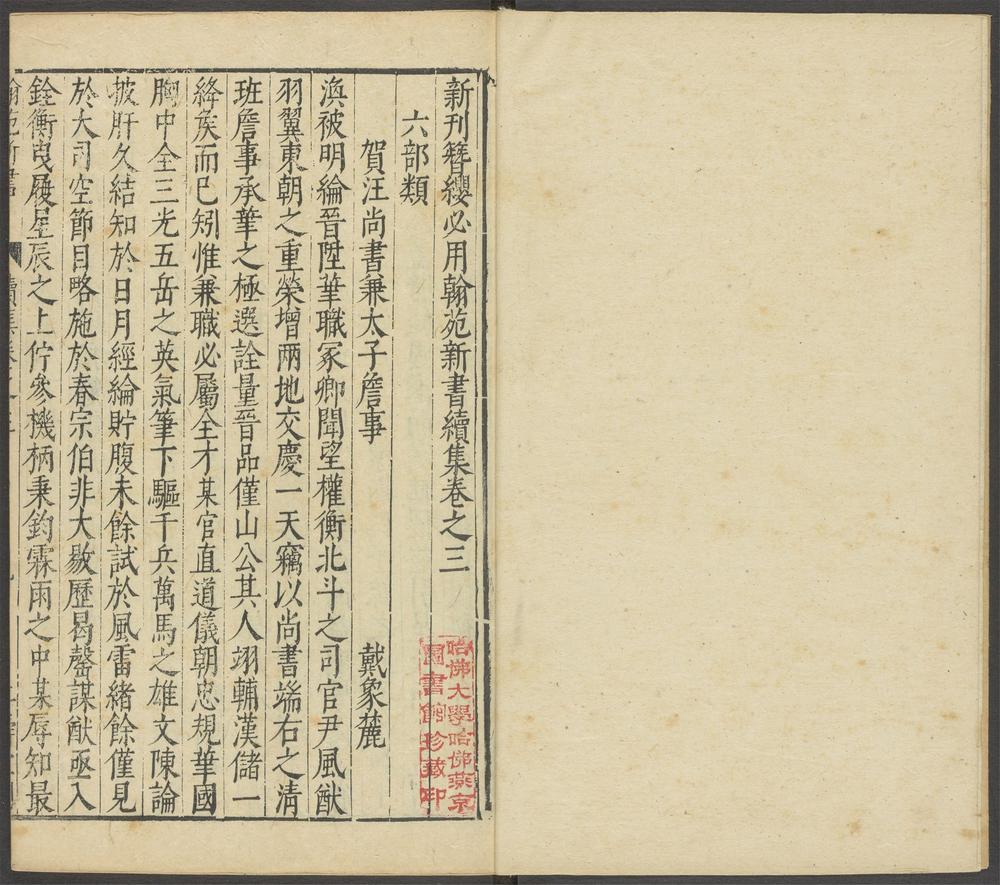 新刊簪纓必用翰苑新書續集卷之三
六部類
賀汪尚書兼太子詹事 戴象麓
渙被明綸晉陞華職冢卿聞望權衡北斗之司官尹風猷
羽翼東朝之重榮增兩地交慶一天竊以尚書端右之清
班詹事承華之極選詮量晉品僅山公其人翊輔漢儲一
絳侯而已矧惟兼職必屬全才某官直道儀朝忠規華國
胸中全三光五岳之英氣筆下驅千兵萬馬之雄文陳論
披肝久結知於日月經綸貯腹未餘試於風雷緒餘僅見
於大司空節目略施於春宗伯非大敭歷曷罄謀猷亟入
銓衡曳履星辰之上佇參機柄秉鈞霖雨之中某辱知最
翰苑新書 續集卷之三
哈佛大學哈佛燕京
圖書館珍藏印